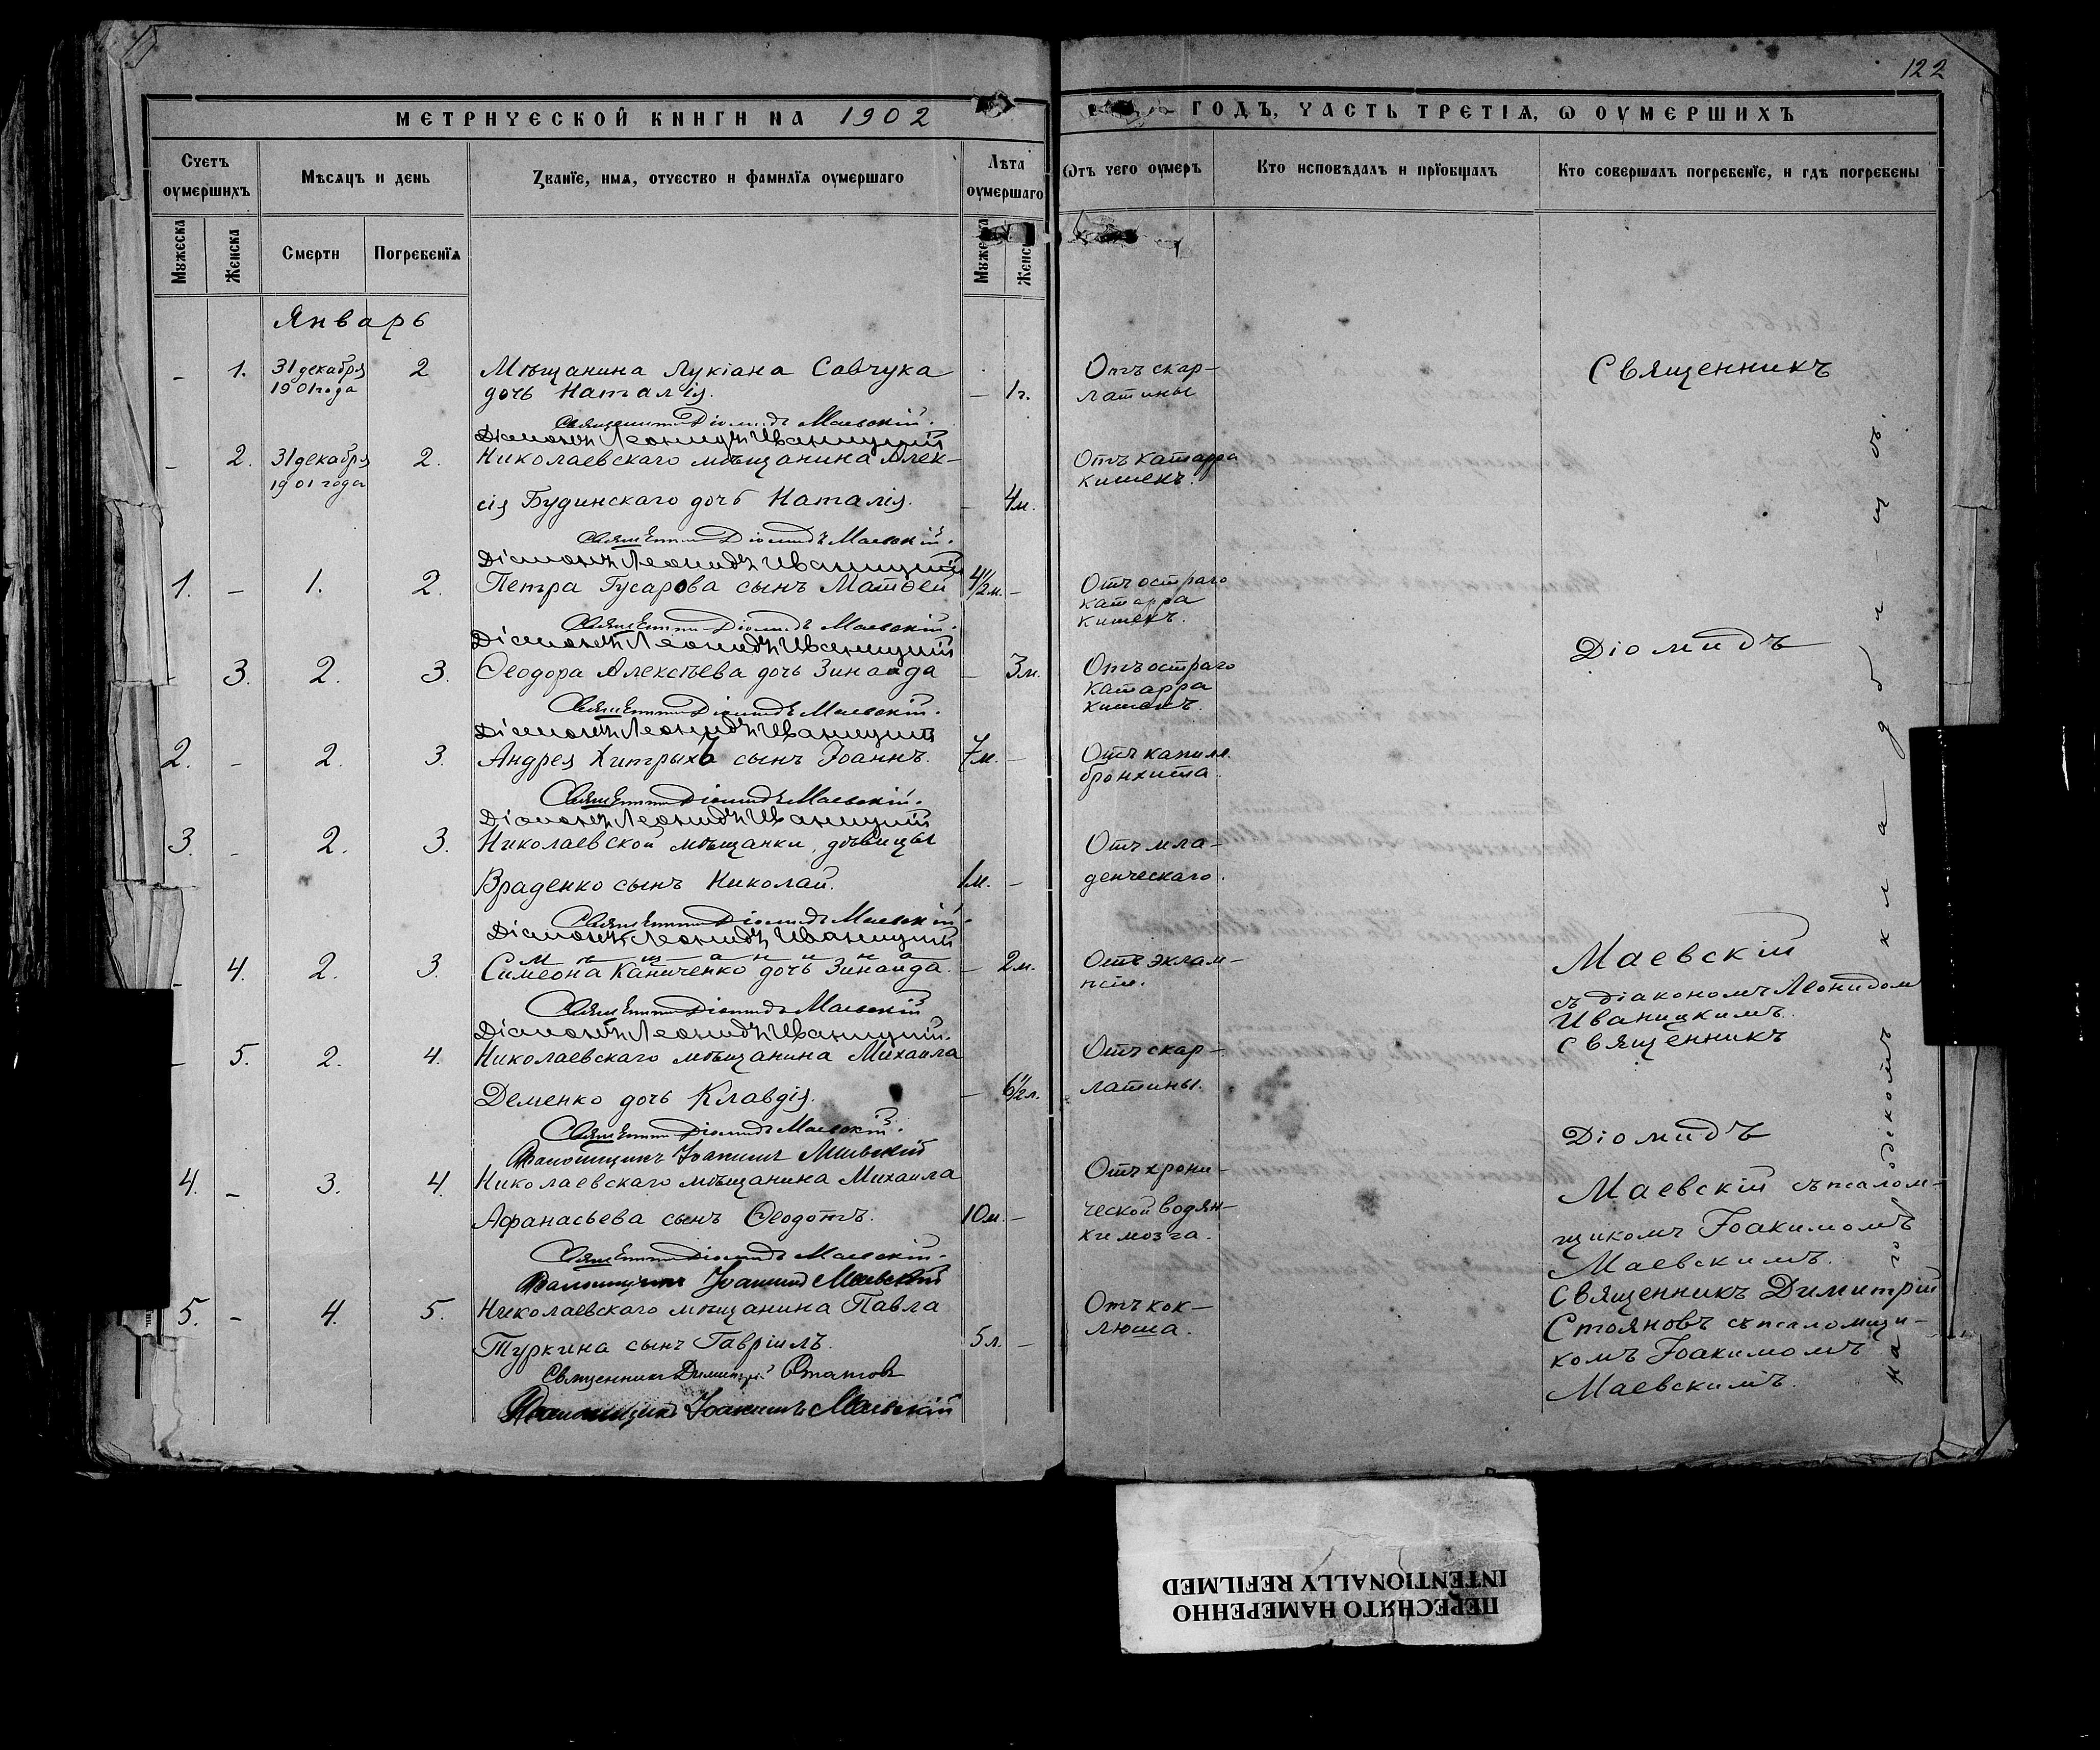 122
МЕТРИЧЕСКОЙ КНИГИ НА 1902
ГОДЪ, ЧАСТЬ ТРЕТІѦ, Ѡ ОУМЕРШИХЪ
Счетъ оумершихъ
Мѣсѧцъ и день
Званїе, имѧ, отчество и фамилїѧ оумершаго
Лѣта оумершаго
Ѿтъ чего оумеръ
Кто исповѣдалъ и прїобщалъ
Кто совершалъ погребенїе, и гдѣ погребены
Мужеска
Женска
Смерти
Погребенїѧ
Мужеска
Женска
Январь
- 1. 31 декабря 2 Мѣщанина Лукіана Савчука Отъ скар- Священникъ
1901 года дочь Наталія. - 1г. латины
Священникъ Діомидъ Маевскій.
Діаконъ Леонидъ Иваницкій
- 2. 31 декабря 2. Николаевскаго мѣщанина Алек- Отъ катарра
1901 года кишекъ.
сія Будинскаго дочь Наталія. - 4м.
Священникъ Діомидъ Маевскій.
Діаконъ Леонидъ Иваницкій
1. - 1. 2. Петра Гусарова сынъ Матѳей 4½м. - Отъ остраго
катарра
кишекъ.
Священникъ Діомидъ Маевскій.
Діаконъ Леонидъ Иваницкій
Діомидъ
- 3. 2. 3. Ѳеодора Алексѣева дочь Зинаида - 3м. Отъ остраго
катарра
кишекъ.
Священникъ Діомидъ Маевскій.
Діаконъ Леонидъ Иваницкій
2. - 2. 3. Андрея Хитрыхъ сынъ Іоаннъ. 7м. - Отъ капилл.
бронхита
Священникъ Діомидъ Маевскій.
Діаконъ Леонидъ Иваницкій
3. - 2. 3. Николаевской мѣщанки, дѣвицы Отъ мла-
Враденко сынъ Николай. 1м. - денческаго.
Священникъ Діомидъ Маевскій.
Діаконъ Леонидъ Иваницкій
Мѣщанина
- 4. 2. 3. Симеона Каниченко дочь Зинаида. - 2м. Отъ эклам-
псіи.
Маевскій
съ діакономъ Леонидом
Иваницкимъ.
Священникъ Діомидъ Маевскій
Діаконъ Леонидъ Иваницкій.
- 5. 2. 4. Николаевскаго мѣщанина Михаила Отъ скар- Священникъ
Деменко дочь Клавдія. - 6½л. латины.
Священникъ Діомидъ Маевскій.
Псаломщикъ Іоакимъ Маевскій
Діомидъ
4. - 3. 4. Николаевскаго мѣщанина Михаила Отъ хрони- Маевскій съ псалом-
Афанасьева сынъ Ѳеодотъ. 10м. - ческой водян- щикомъ Іоакимомъ
ки мозга. Маевскимъ.
Священникъ Діомидъ Маевскій.
Псаломщикъ Іоакимъ Маевскій
5. - 4. 5. Николаевскаго мѣщанина Павла Отъ кок- Священникъ Димитрій
Туркина сынъ Гавріилъ. 5л. - люша. Стояновъ съ псаломщи-
комъ Іоакимомъ
Маевскимъ.
Священникъ Димитрій Стояновъ
Псаломщикъ Іоакимъ Маевскій
на городскомъ кладбищѣ.
ПЕРЕСНЯТО НАМЕРЕННО
INTENTIONALLY REFILMED